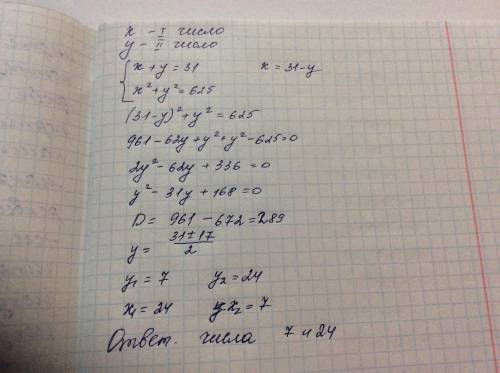 x - I число
y - II число
{ x + y = 31     x = 31-y
x² + y² = 625
(31-y)² + y² = 625
961 - 62y + y² + y² - 625 = 0
2y² - 62y + 336 = 0
y² - 31y + 168 = 0
D = 961 - 672 = 289
y = (31 ± 17)/2
y₁ = 7     y₂ = 24
x₁ = 24     x₂ = 7
Ответ. числа 7 и 24